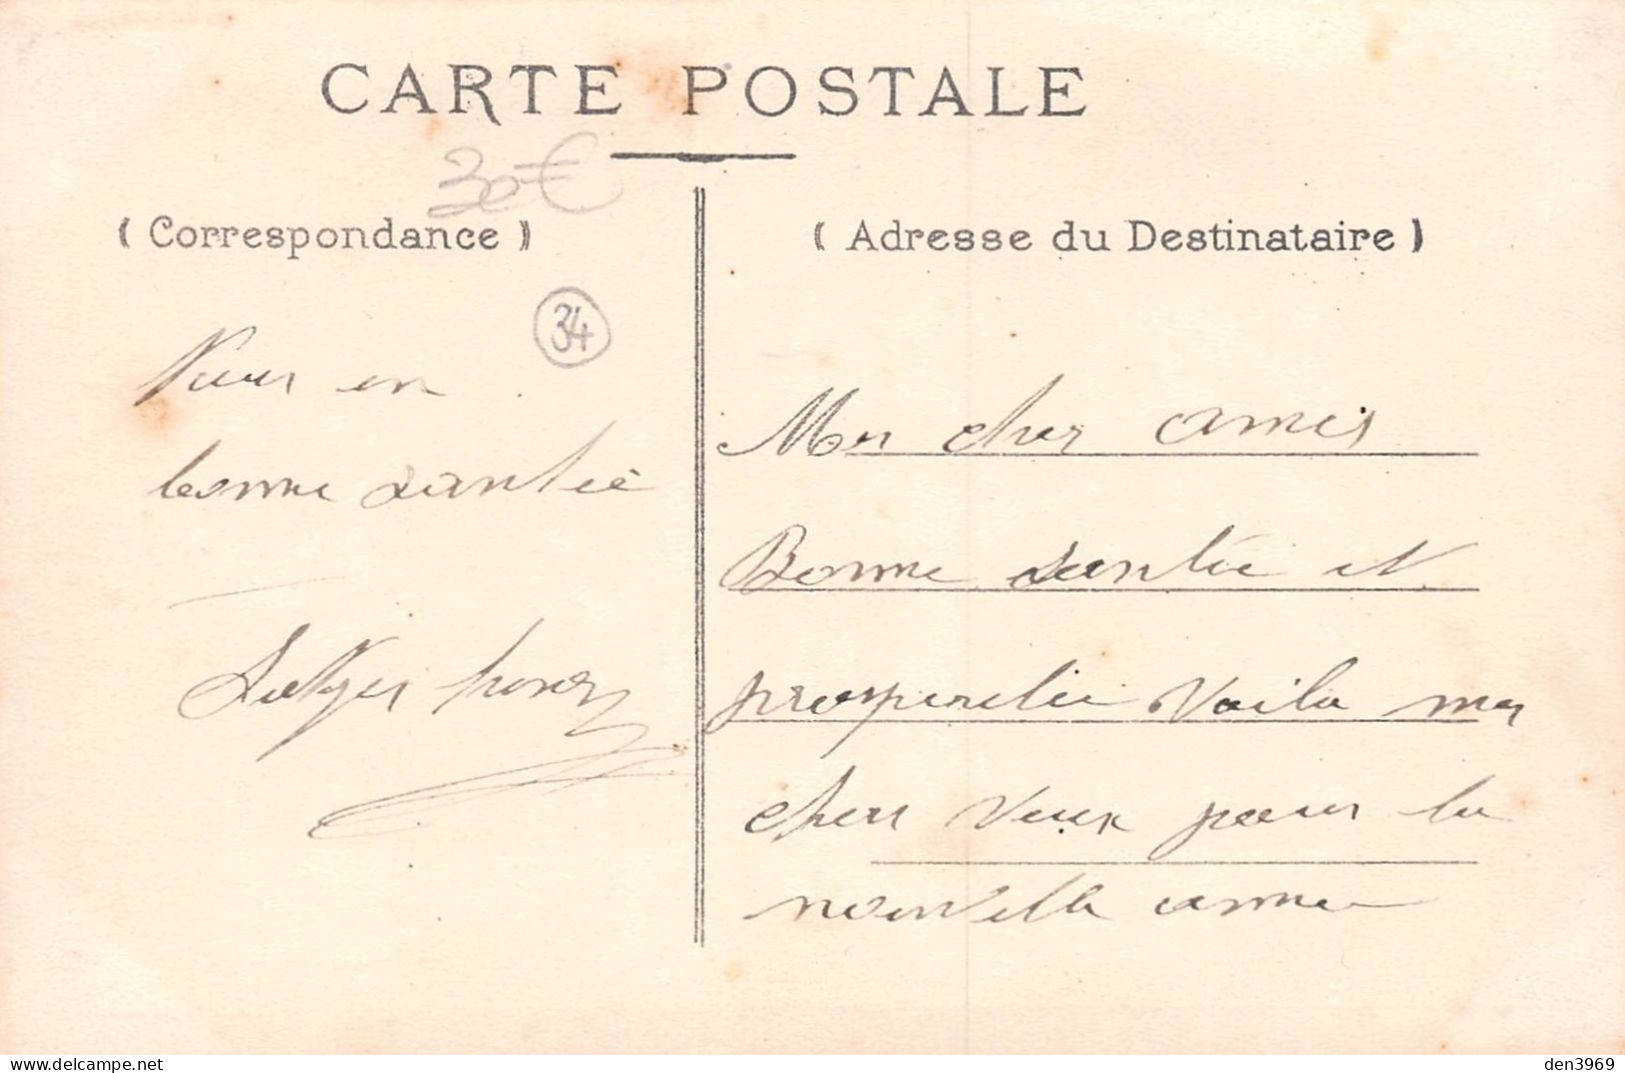 CARTE POSTALE
30€
( Correspondance )
( Adresse du Destinataire )
34
en
bonne santée
Mon cher amis
Bonne santée et
prosperitée Voila mes
chers veux pour la
nouvelle anne
delcampe.net
den3969